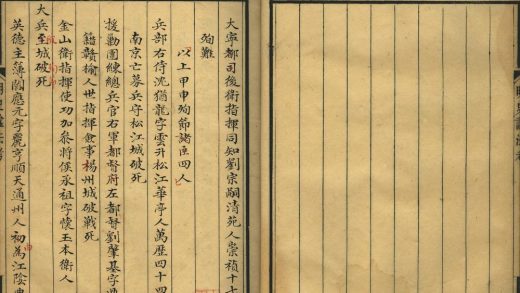 大寧都司後衛指揮同知劉宗嗣清苑人崇禎十七
殉難
以上甲申殉節諸臣四人
兵部右侍沈猶龍字雲升松江華亭人萬歷四十四
南京亡募兵守松江城破死
援勦團練總兵官右軍都督府左都督劉肇基字
籍贛榆人世指揮僉事楊州城破戰死
金山衛指揮使功加參將侯承祖字懷玉本衛人
大兵至城破死
英德主簿閻應元字麗亨順天通州人初為江陰典